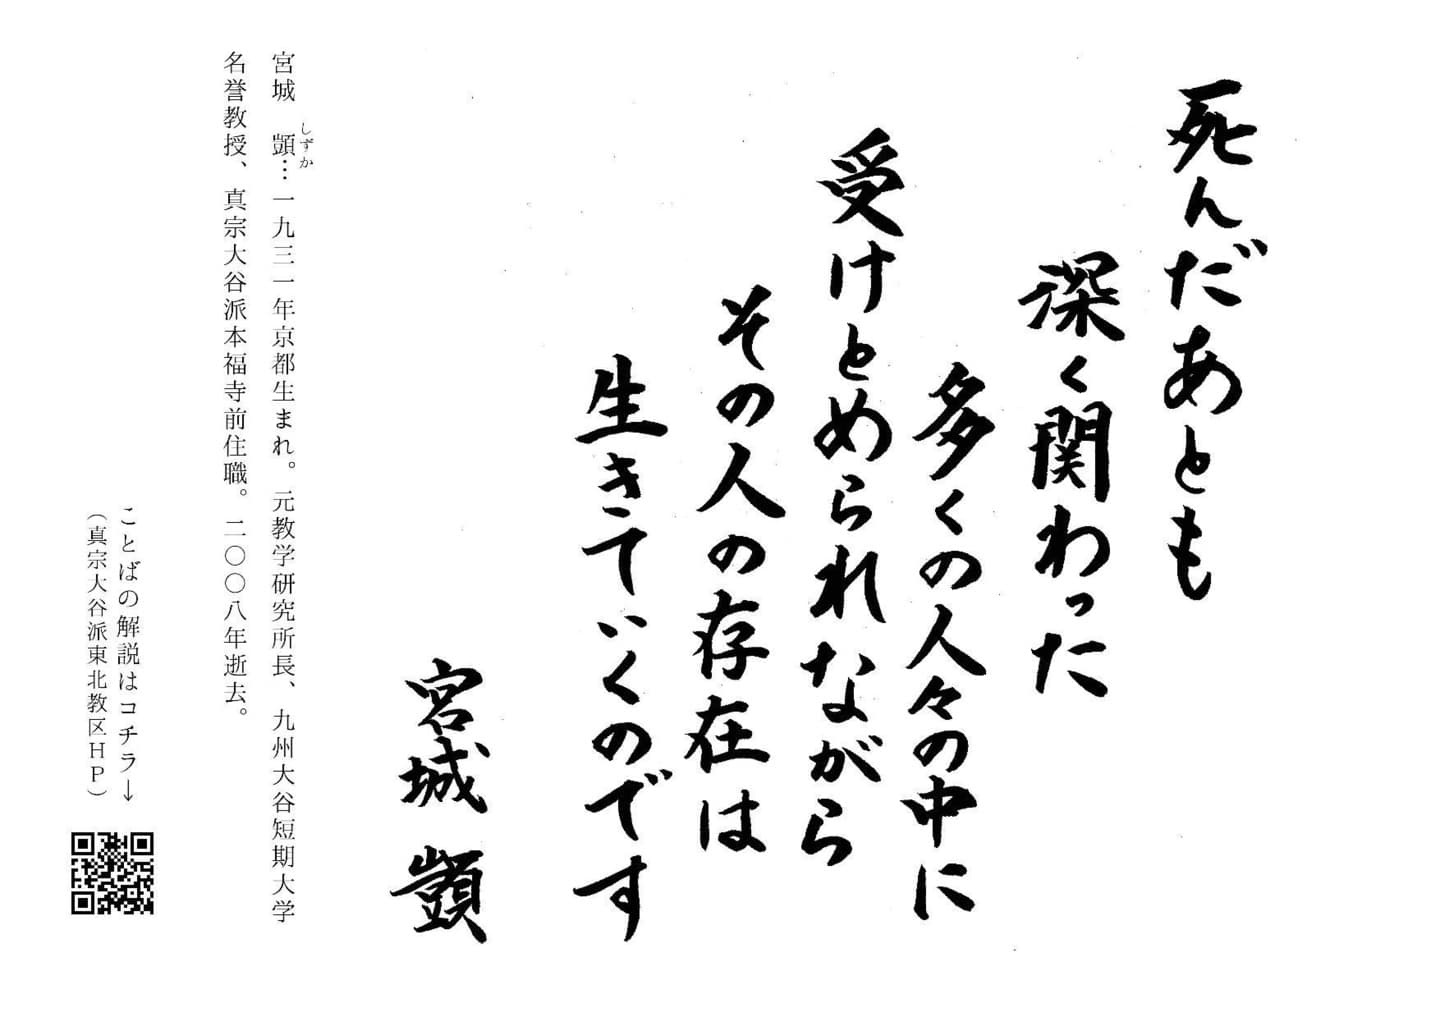 死んだあとも
深く関わった
多くの人々の中に
受けとめられながら
その人の存在は
生きていくのです
宮城 顗
しずか
宮城 顗…一九三一年京都生まれ。元教学研究所長、九州大谷短期大学
名誉教授、真宗大谷派本福寺前住職。二〇〇八年逝去。
ことばの解説はコチラ→
（真宗大谷派東北教区ＨＰ）